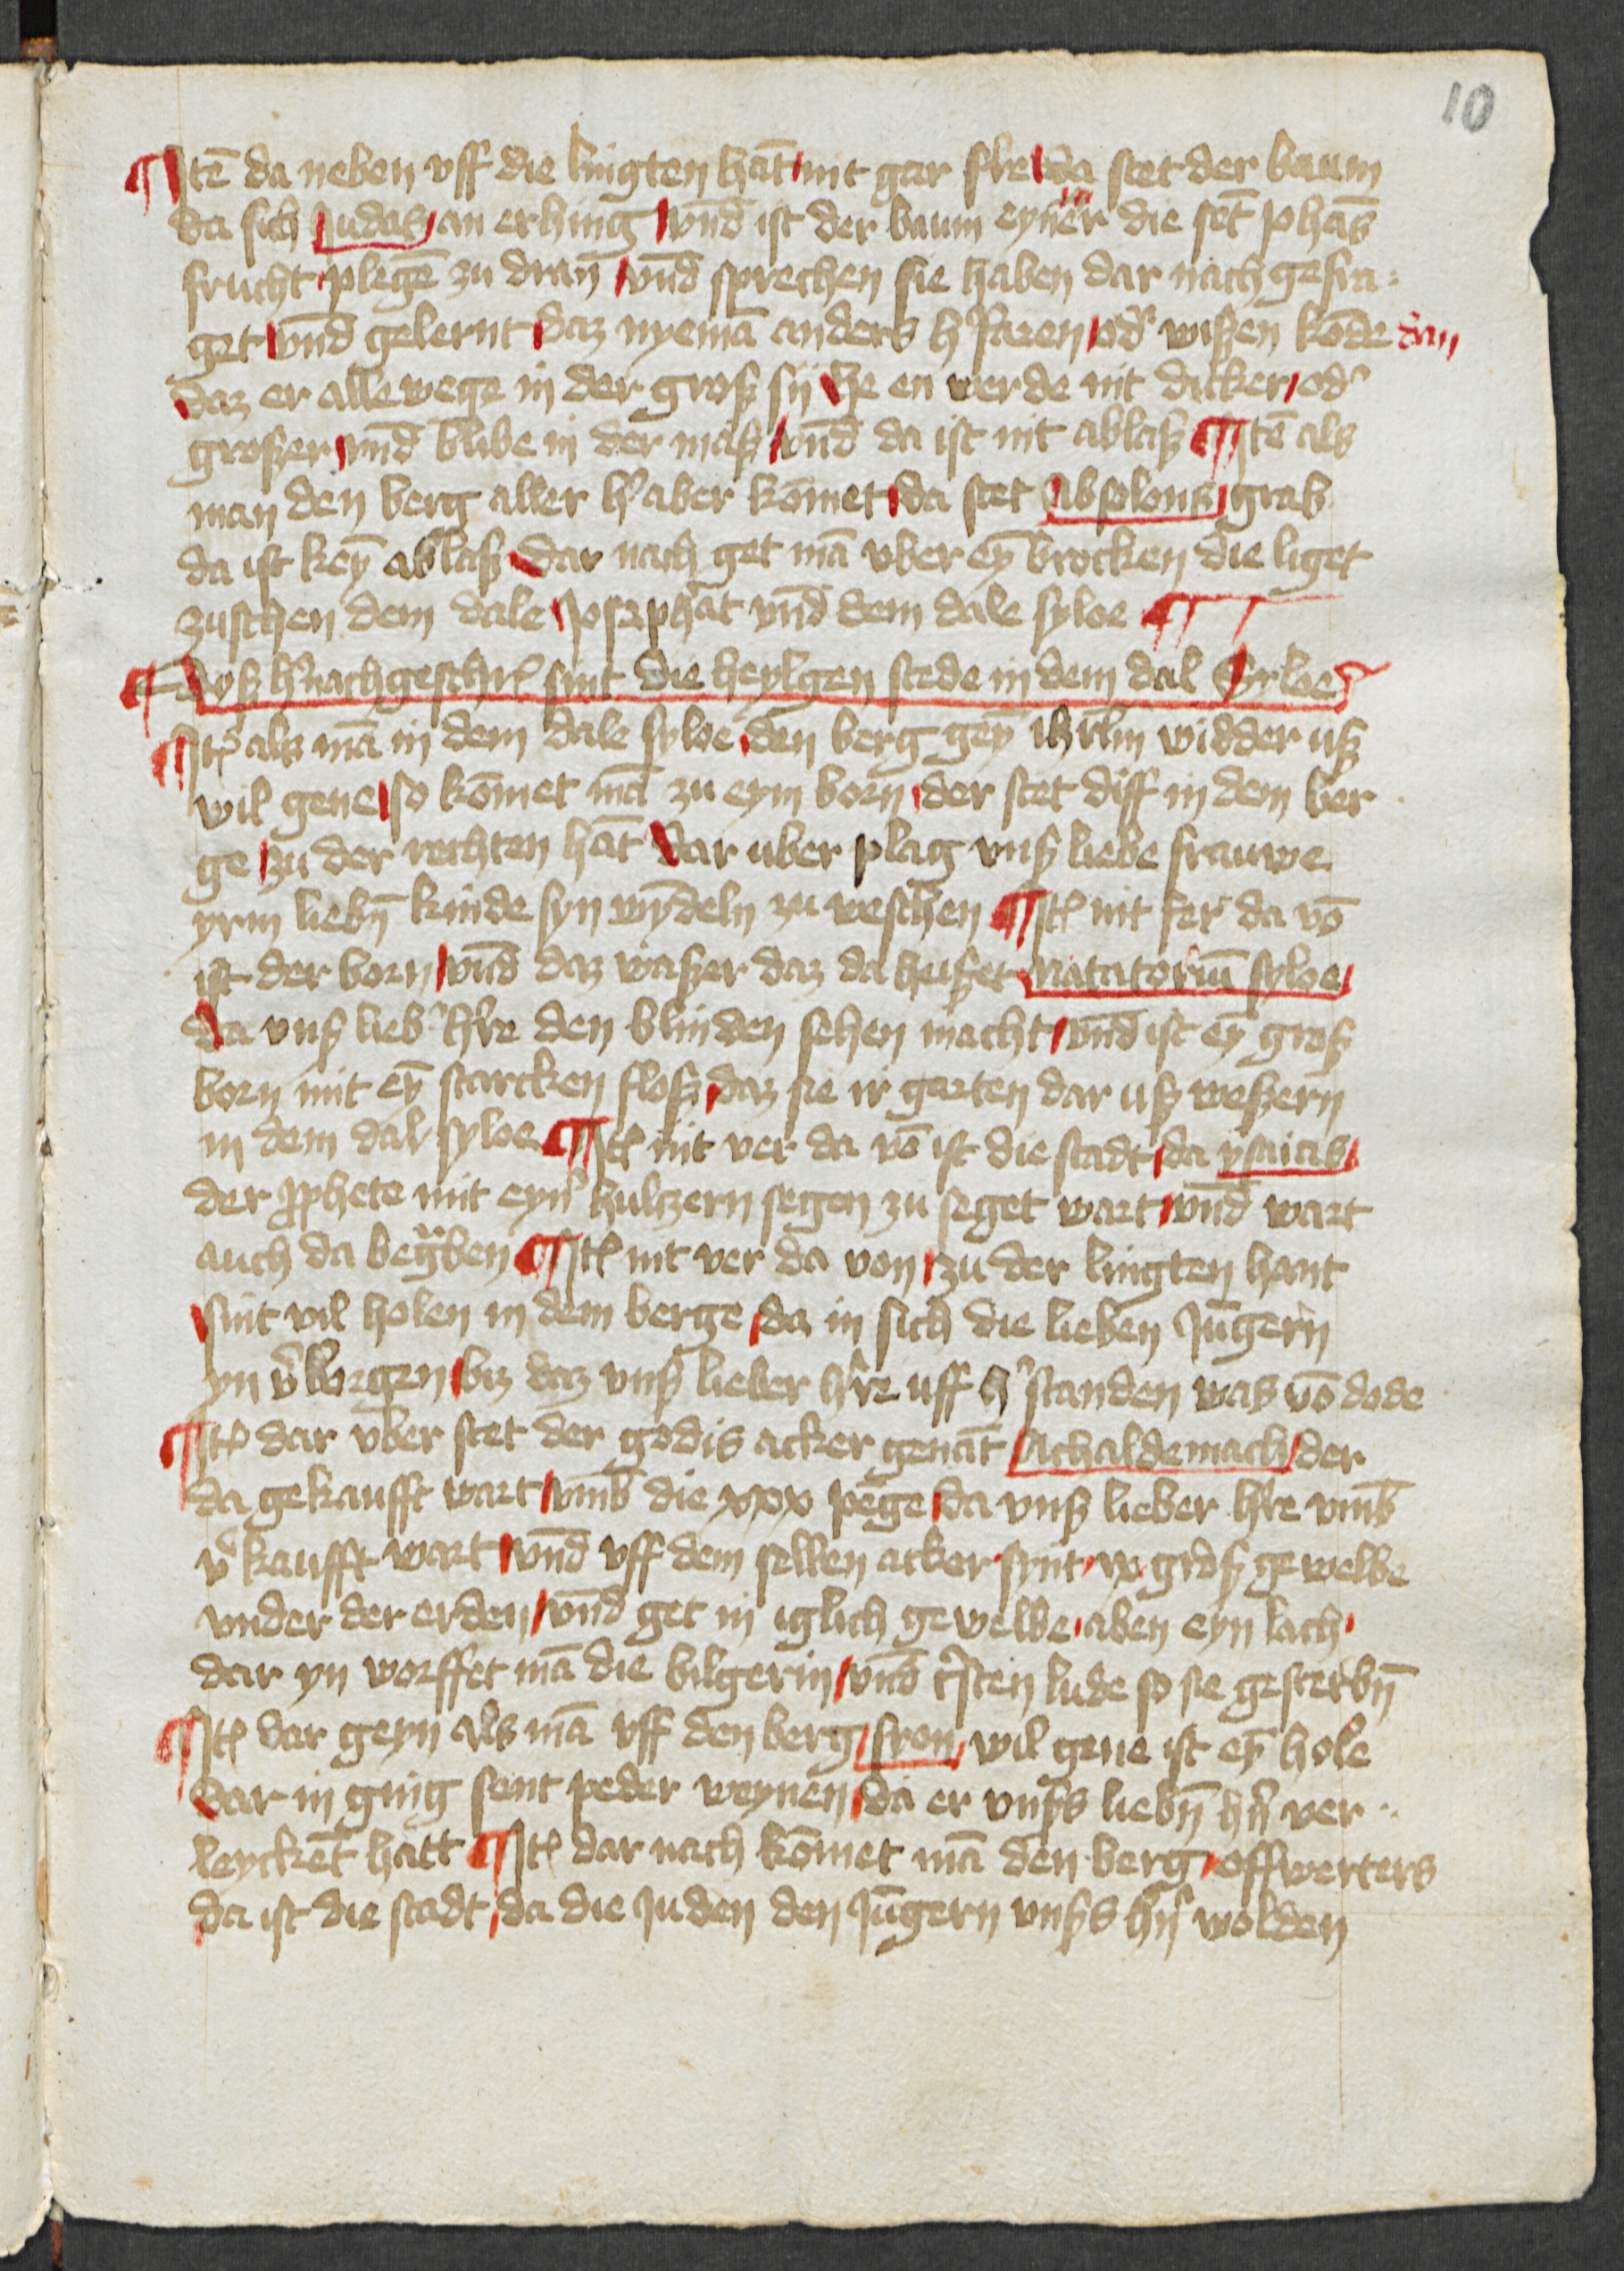 10
¶ Itē da neben vff die lingten hāt nit gar fire da stet der baum
da sich Judas an erhing vnd ist der baum eyner die sēt Johās
frucht plegē zu dran vnd sprechen sie haben dar nach gefra:
get vnd gelernt daz nyemā anders hʼfaren odʼ wißen kōde dan
daz er alle wege in der groß sy he en werde nit dicker odʼ
großer vnd blibe in der maß vnd da ist nit ablaß ¶ Itē als
man den berg aller hʼaber kōmet da stet Absolons grab
da ist key̅ ablaß Dar nach get mā vber ey̅ brocken die liget
zuschen dem dale Josaphat vnd dem dale syloe ¶
¶ Dyß hʼnachgeschrʼ sint die heylgen stede in dem dal Syloe
¶ Itʼ als mā in dem dale syloe den berg gey̅ ihrlm widder uß
wil gene so kōmet mā zu eym born der stet diff in dem ber
ge zu der rechten hāt Dar uber plag vnß liebe frauwe
yrm liebn̅ kinde syn wy̅deln zu weschen ¶ Itʼ nit ferʼ da vō
ist der born vnd daz waßer daz da heißet natatoriū syloe
Da vnß liebʼ hʼre den blinden sehen macht vnd ist ey̅ groß
born mit ey̅ starcken floß daz sie ir garten dar uß weßern
in dem dal syloe ¶ Itʼ nit ver da vō ist die stadt da ysaias
der ꝓphete mit eynʼ hultzern segen zu seget wart vnd wart
auch da begraben ¶ Itʼ nit ver da von zu der lingten hant
sint vil holen in dem berge da in sich die lieben Jūgern
yn vʼborgen biz daz vnß lieber hʼre uff hʼstanden was vō dode
¶ Itʼ dar vber stet der godis acker genāt Achaldemach der
da gekaufft wart vmb die xxx pēge da vnß lieber hʼre vmb
vʼkaufft wart vnd vff dem selben acker sint ix groß gewelbe
vnder der erden vnd get in iglich gewelbe aben eyn lach
dar yn worffet mā die bilgerin vnd cʼsten lude so sie gesterbn̅
¶ Itʼ dar geyn als mā vff den berg syon wil gene ist ey̅ hole
Dar in ging sent peder weynen da er vnßs liebn̅ hʼn ver
leyckēt hatt ¶ Itʼ dar nach kōmet mā den berg offwerters
da ist die stadt da die Juden den Jūgern vnßs hʼn wolden